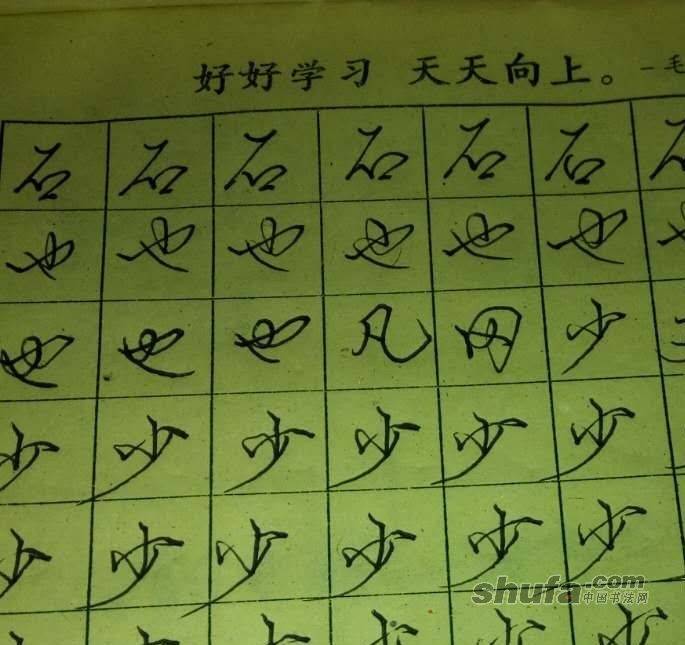 好好学习 天天向上。—毛
石 石 石 石 石 石 石
也 也 也 也 也 也
也 也 也 凡 网 少
少 少 少 少 少 少
少 少 少 少 少 少
shufa.com
中国书法网